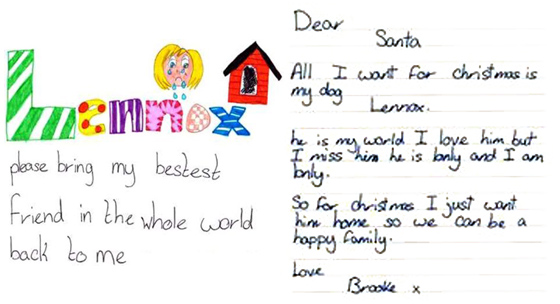 Lennox
please bring my bestest
friend in the whole world
back to me
Dear
Santa
All I want for christmas is
my dog
Lennox.
he is my world I love him but
I miss him he is lonly and I am
lonly.
So for christmas I just want
him home so we can be a
happy family.
Love
Brooke x